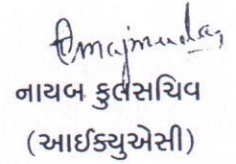 નાયબ કુલસચિવ
(આઈક્યુએસી)